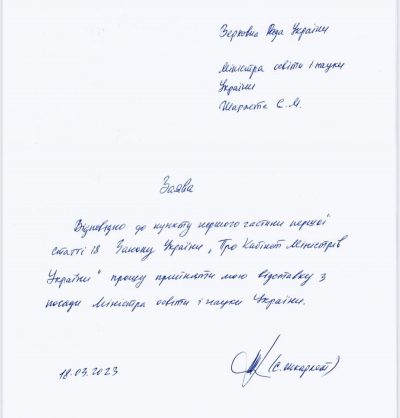 Верховна Рада України
Міністра освіти і науки
України
Шкарлета С. М.
Заява
Відповідно до пункту першого частини першої
статті 18 Закону України „Про Кабінет Міністрів
України" прошу прийняти мою відставку з
посади Міністра освіти і науки України.
18.03.2023
(С. Шкарлет)